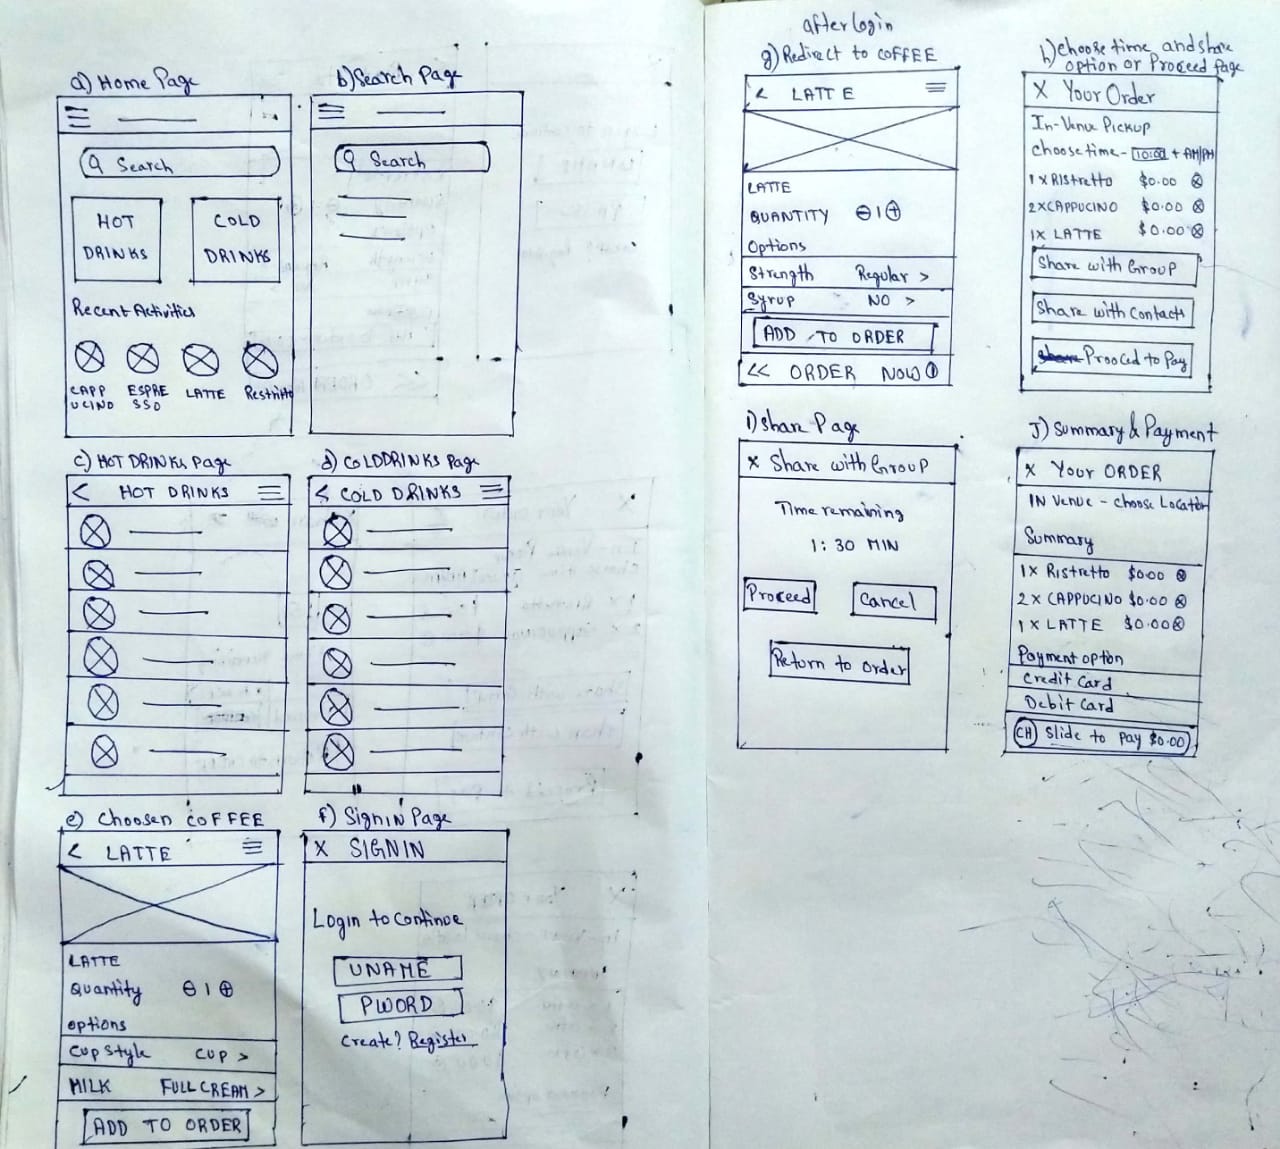 a) Home Page
Search
HOT
DRINKS
COLD
DRINKS
Recent Activities
CAPP
UCINO
ESPRE
SSO
LATTE
Restritto
b) Search Page
Search
c) HOT DRINKS Page
< HOT DRINKS
d) COLDDRINKS Page
< COLD DRINKS
e) Choosen COFFEE
< LATTE
LATTE
Quantity ⊖ 1 ⊕
options
Cup Style CUP >
MILK FULL CREAM >
ADD TO ORDER
f) SignIN Page
X SIGNIN
Login to Continue
UNAME
PWORD
Create? Register
after login
g) Redirect to COFFEE
< LATTE
LATTE
QUANTITY ⊖ 1 ⊕
Options
Strength Regular >
Syrup NO >
ADD TO ORDER
<< ORDER NOW ①
h) Choose time, and share
option or Proceed page
X Your Order
In-Venue Pickup
Choose time - 10:00 + AM/PM
1 x RIStretto $0.00 ⊗
2 x CAPPUCINO $0.00 ⊗
1x LATTE $0.00 ⊗
Share with Group
Share with Contacts
Prooced to Pay
i) Share Page
x Share with Group
Time remaining
1:30 MIN
Proceed
Cancel
Return to order
J) Summary & Payment
x Your ORDER
IN Venue - choose Location
Summary
1x Ristretto $0.00 ⊗
2 x CAPPUCINO $0.00 ⊗
1 x LATTE $0.00 ⊗
Payment option
Credit Card
Debit Card
CH Slide to Pay $0.00